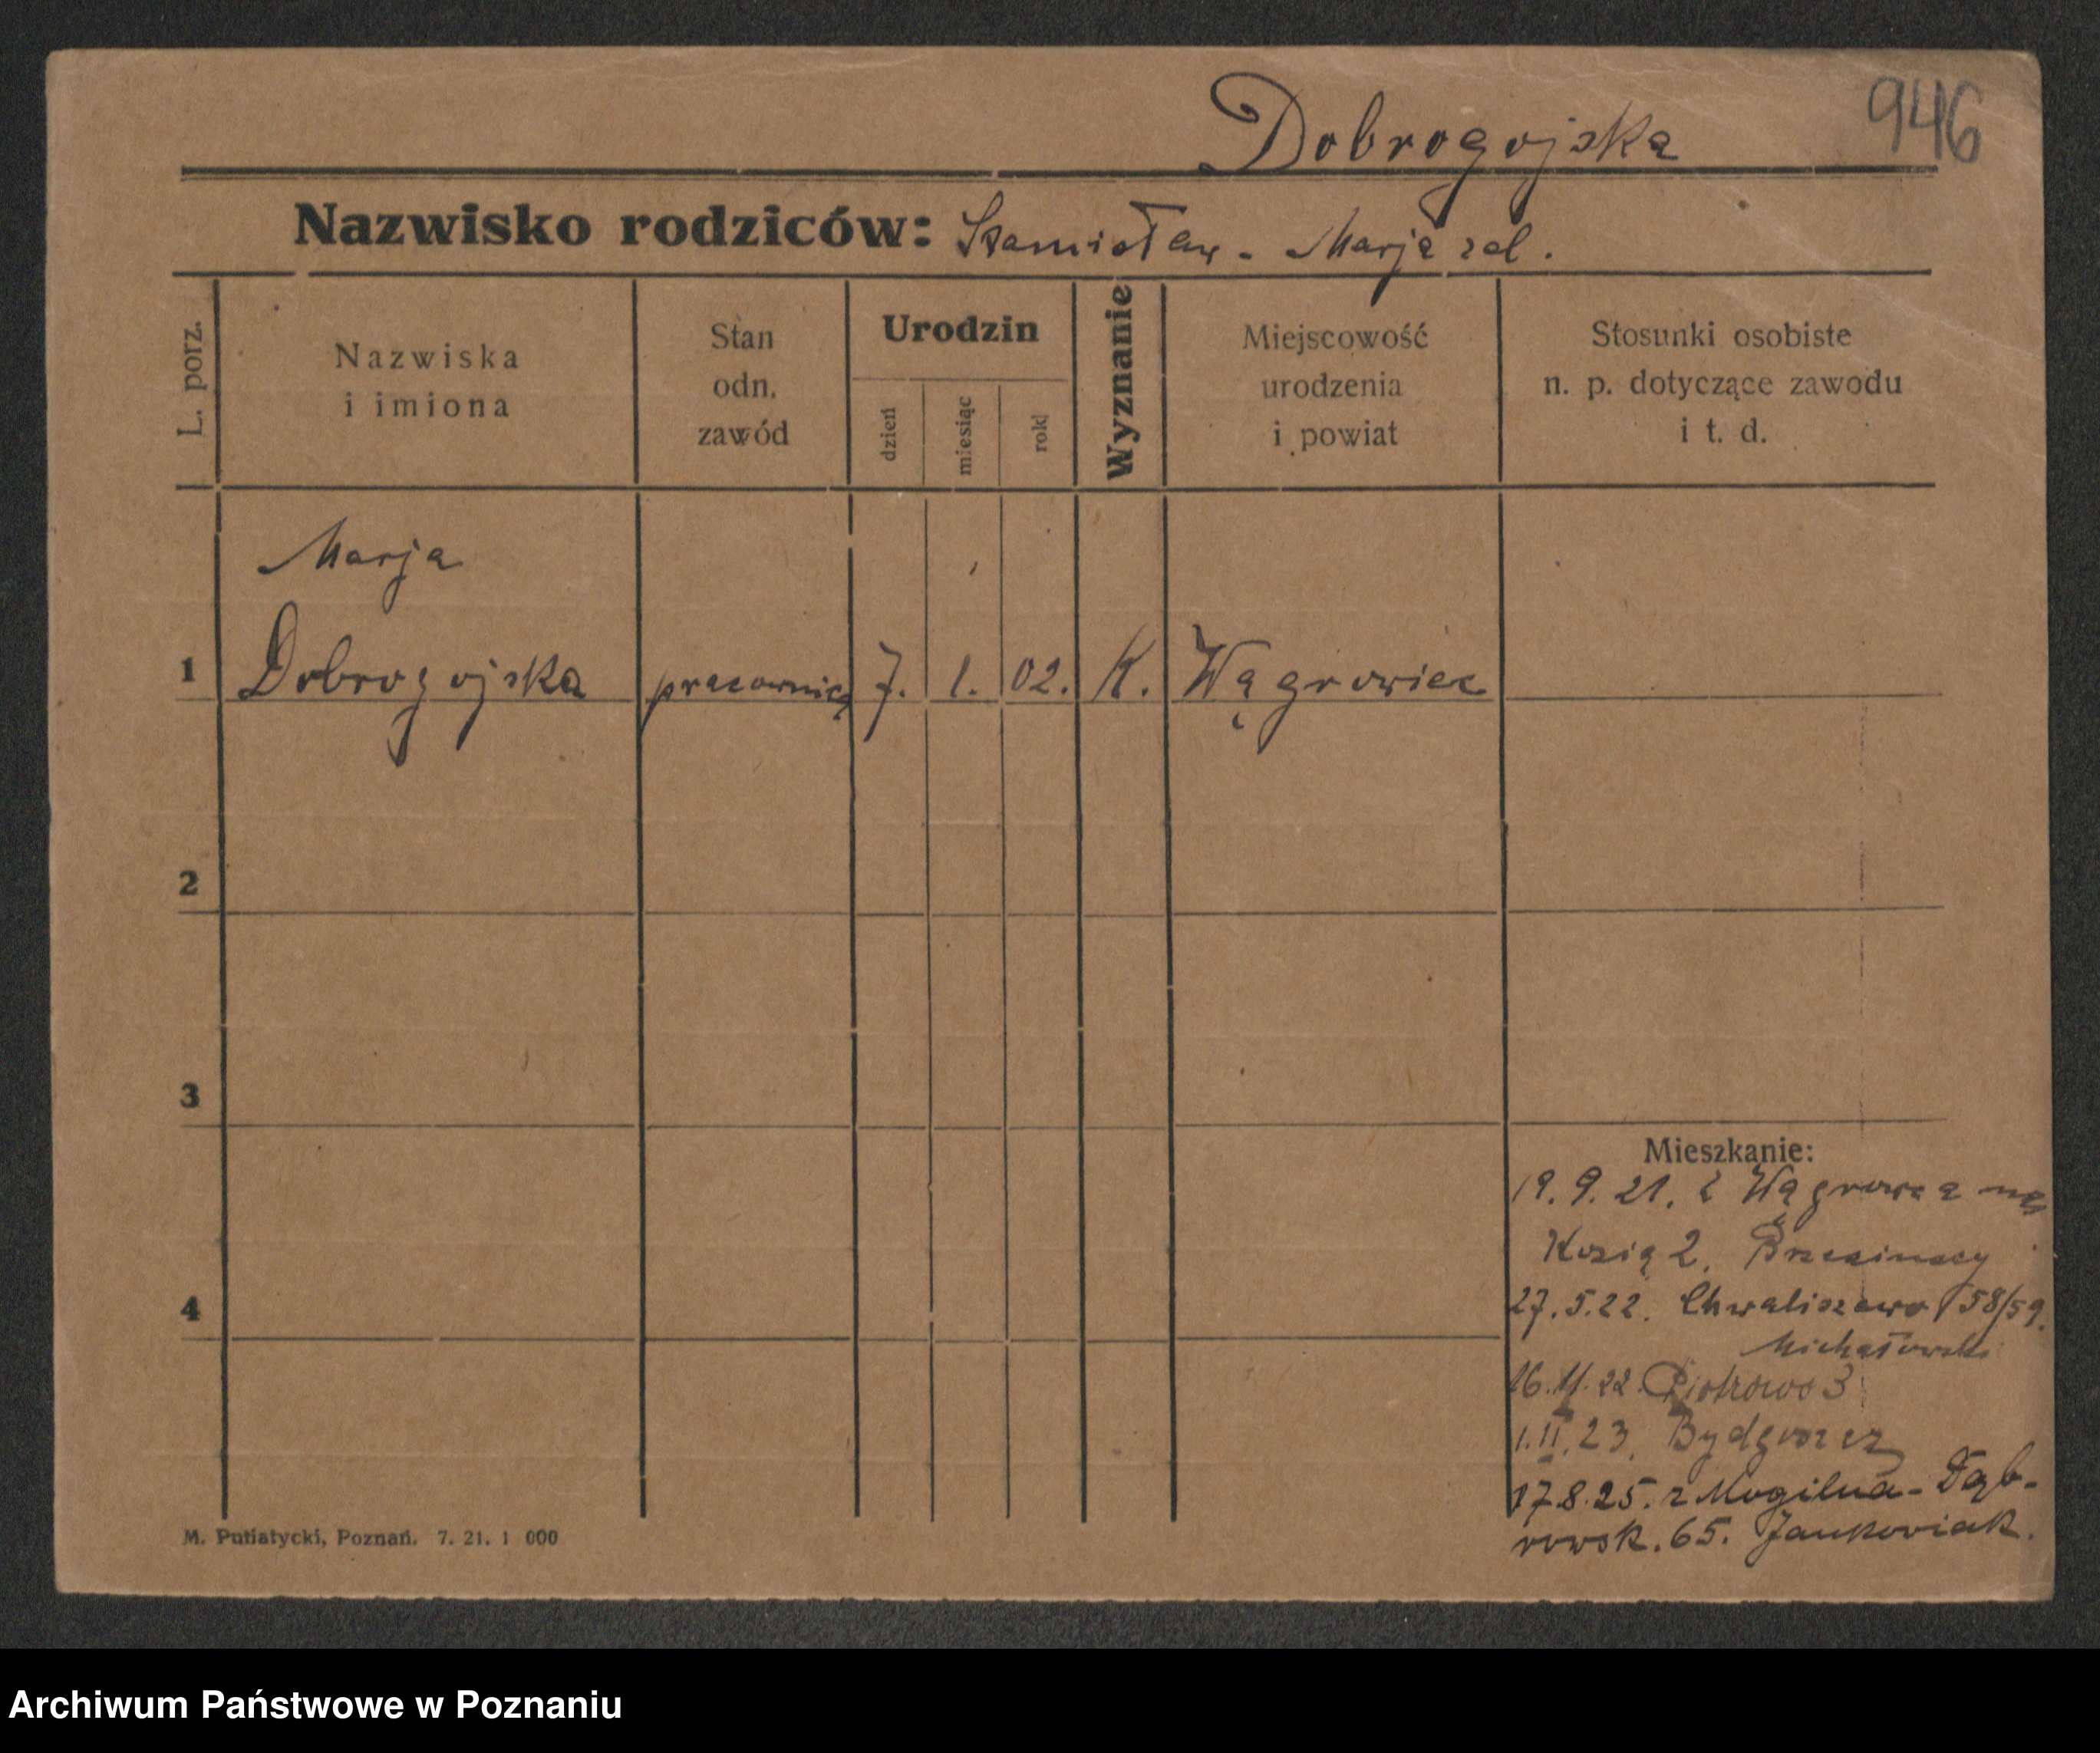 946
Dobrogojska
Nazwisko rodziców: Stanisław - Marja zd.
L. porz.
Nazwiska
i imiona
Stan
odn.
zawód
Urodzin
dzień
miesiąc
rok
Wyznanie
Miejscowość
urodzenia
i powiat
Stosunki osobiste
n. p. dotyczące zawodu
i t. d.
Marja
1 Dobrogojska pracownica 7. 1. 02. K. Wągrowiec
2
3
Mieszkanie:
19. 9. 21. z Wągrowca na
Kozią 2.
4
27. 5. 22. Chwaliszewo 58/59.
Michałowski
16. 11. 22. Piotrowo 3
1. II. 23. Bydgoszcz
17. 8. 25. z Mogilna - Dąb-
rowsk. 65. Jankowiak.
M. Putiatycki, Poznań. 7. 21. 1 000
Archiwum Państwowe w Poznaniu